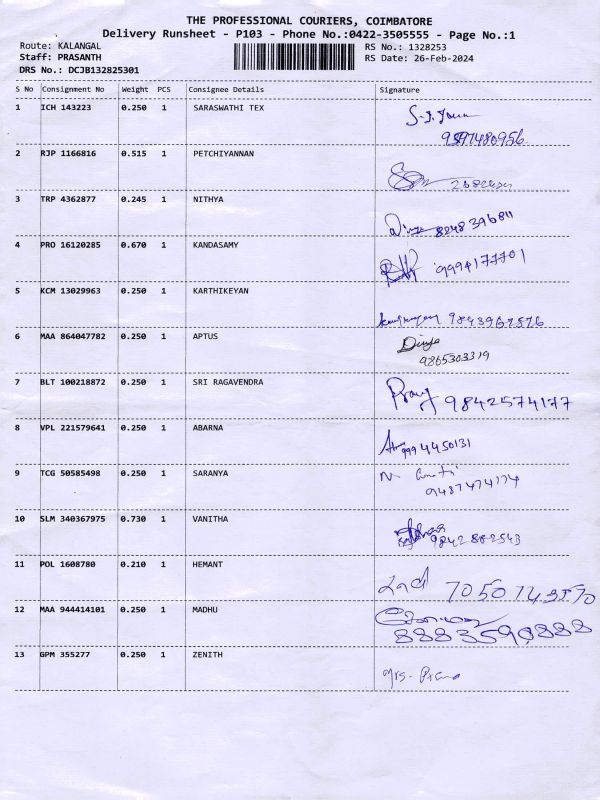 THE PROFESSIONAL COURIERS, COIMBATORE
Delivery Runsheet - P103 - Phone No.:0422-3505555 - Page No.:1
Route: KALANGAL RS No.: 1328253
Staff: PRASANTH RS Date: 26-Feb-2024
DRS No.: DCJB132825301
S No Consignment No Weight PCS Consignee Details Signature
1 ICH 143223 0.250 1 SARASWATHI TEX
2 RJP 1166816 0.515 1 PETCHIYANNAN
3 TRP 4362877 0.245 1 NITHYA
8248396811
4 PRO 16120285 0.670 1 KANDASAMY
9994177701
5 KCM 13029963 0.250 1 KARTHIKEYAN
9843962576
6 MAA 864047782 0.250 1 APTUS
Divya
9865303319
7 BLT 100218872 0.250 1 SRI RAGAVENDRA
9842574177
8 VPL 221579641 0.250 1 ABARNA
9994450131
9 TCG 50585498 0.250 1 SARANYA
9487474174
10 SLM 340367975 0.730 1 VANITHA
9842882543
11 POL 1608780 0.210 1 HEMANT
12 MAA 944414101 0.250 1 MADHU
8883590888
13 GPM 355277 0.250 1 ZENITH